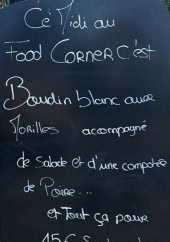 Cé Midi au
Food Corner C'est
Boudin blanc aux
Morilles accompagné
de Salade et d'une compotée
de Poire...
et Tout ça pour
15€